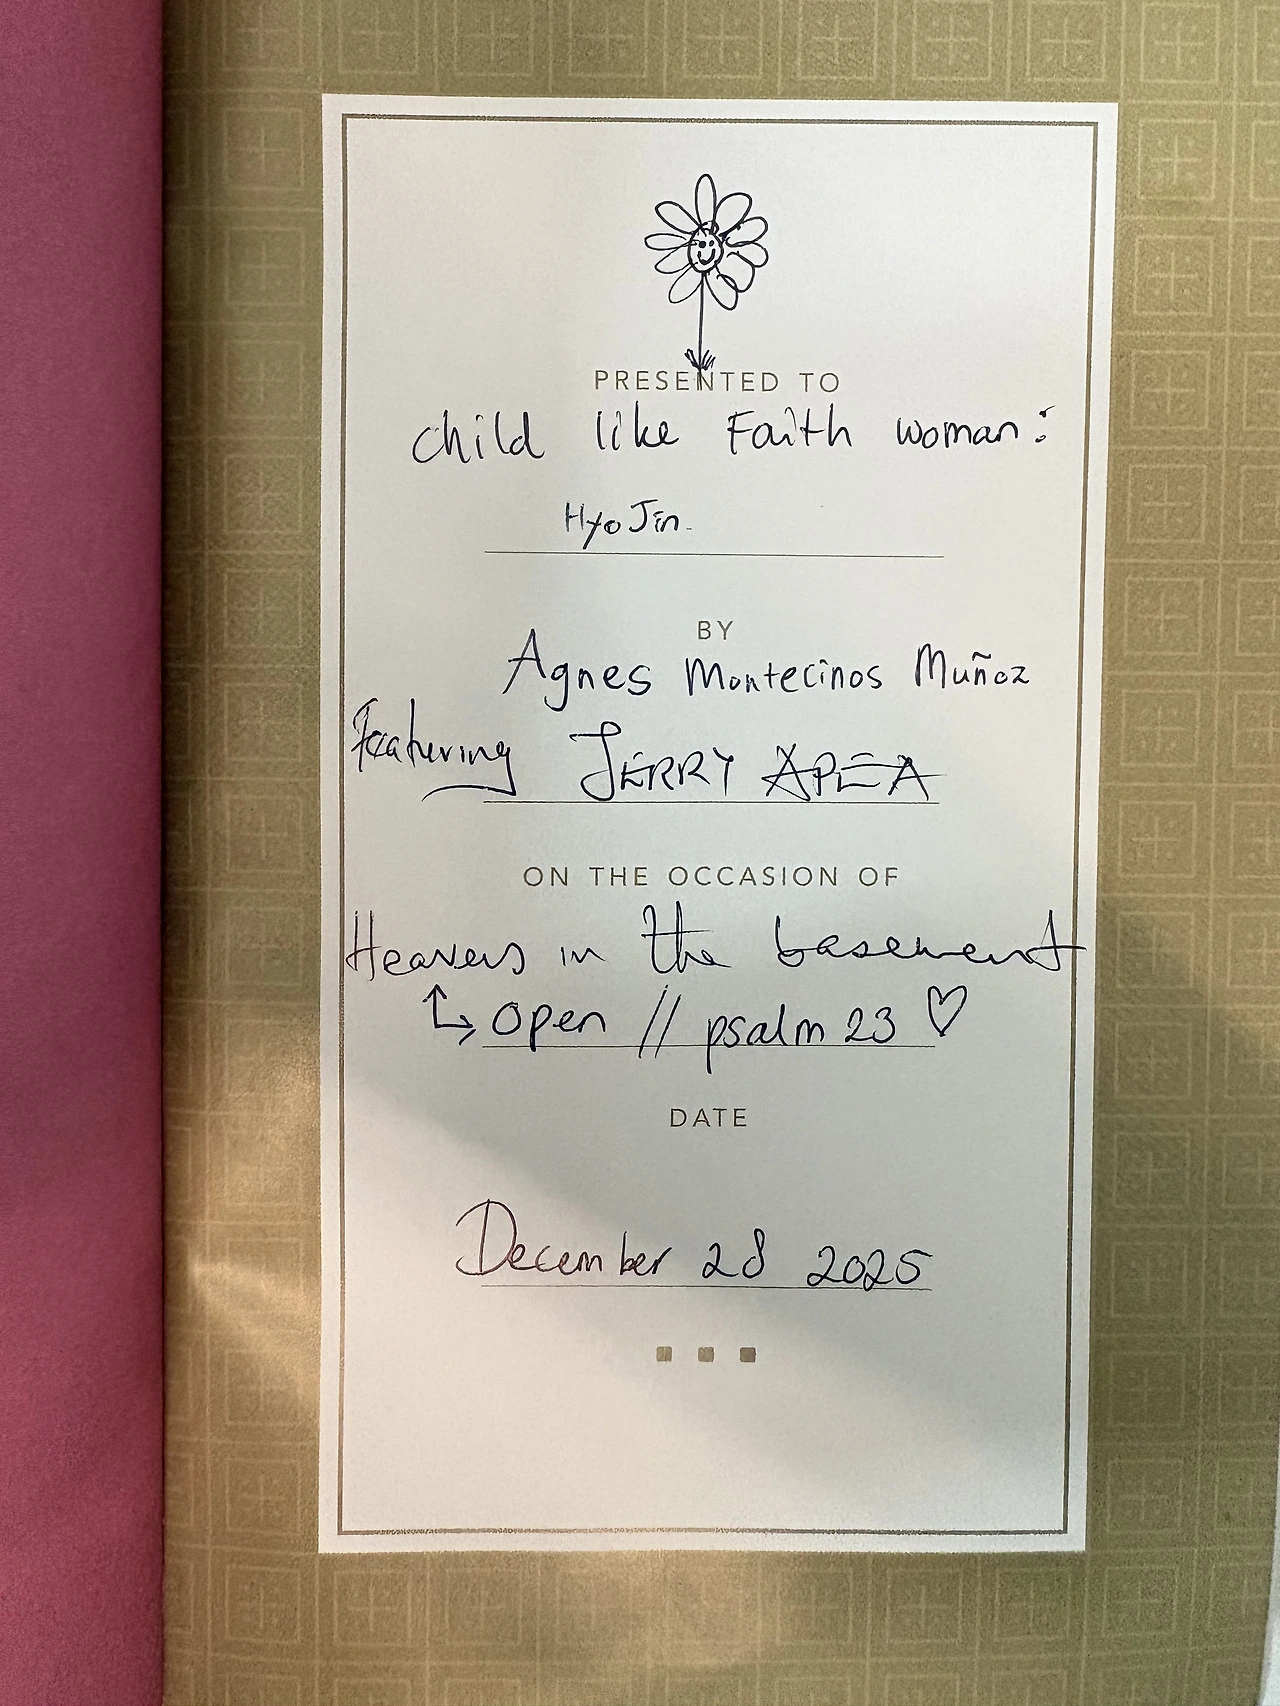 PRESENTED TO
child like Faith woman:
HyoJin
BY
Agnes Montecinos Muñoz
Featuring JERRY APEA
ON THE OCCASION OF
Heavens in the basement
↳ open // psalm 23 ♡
DATE
December 28 2025